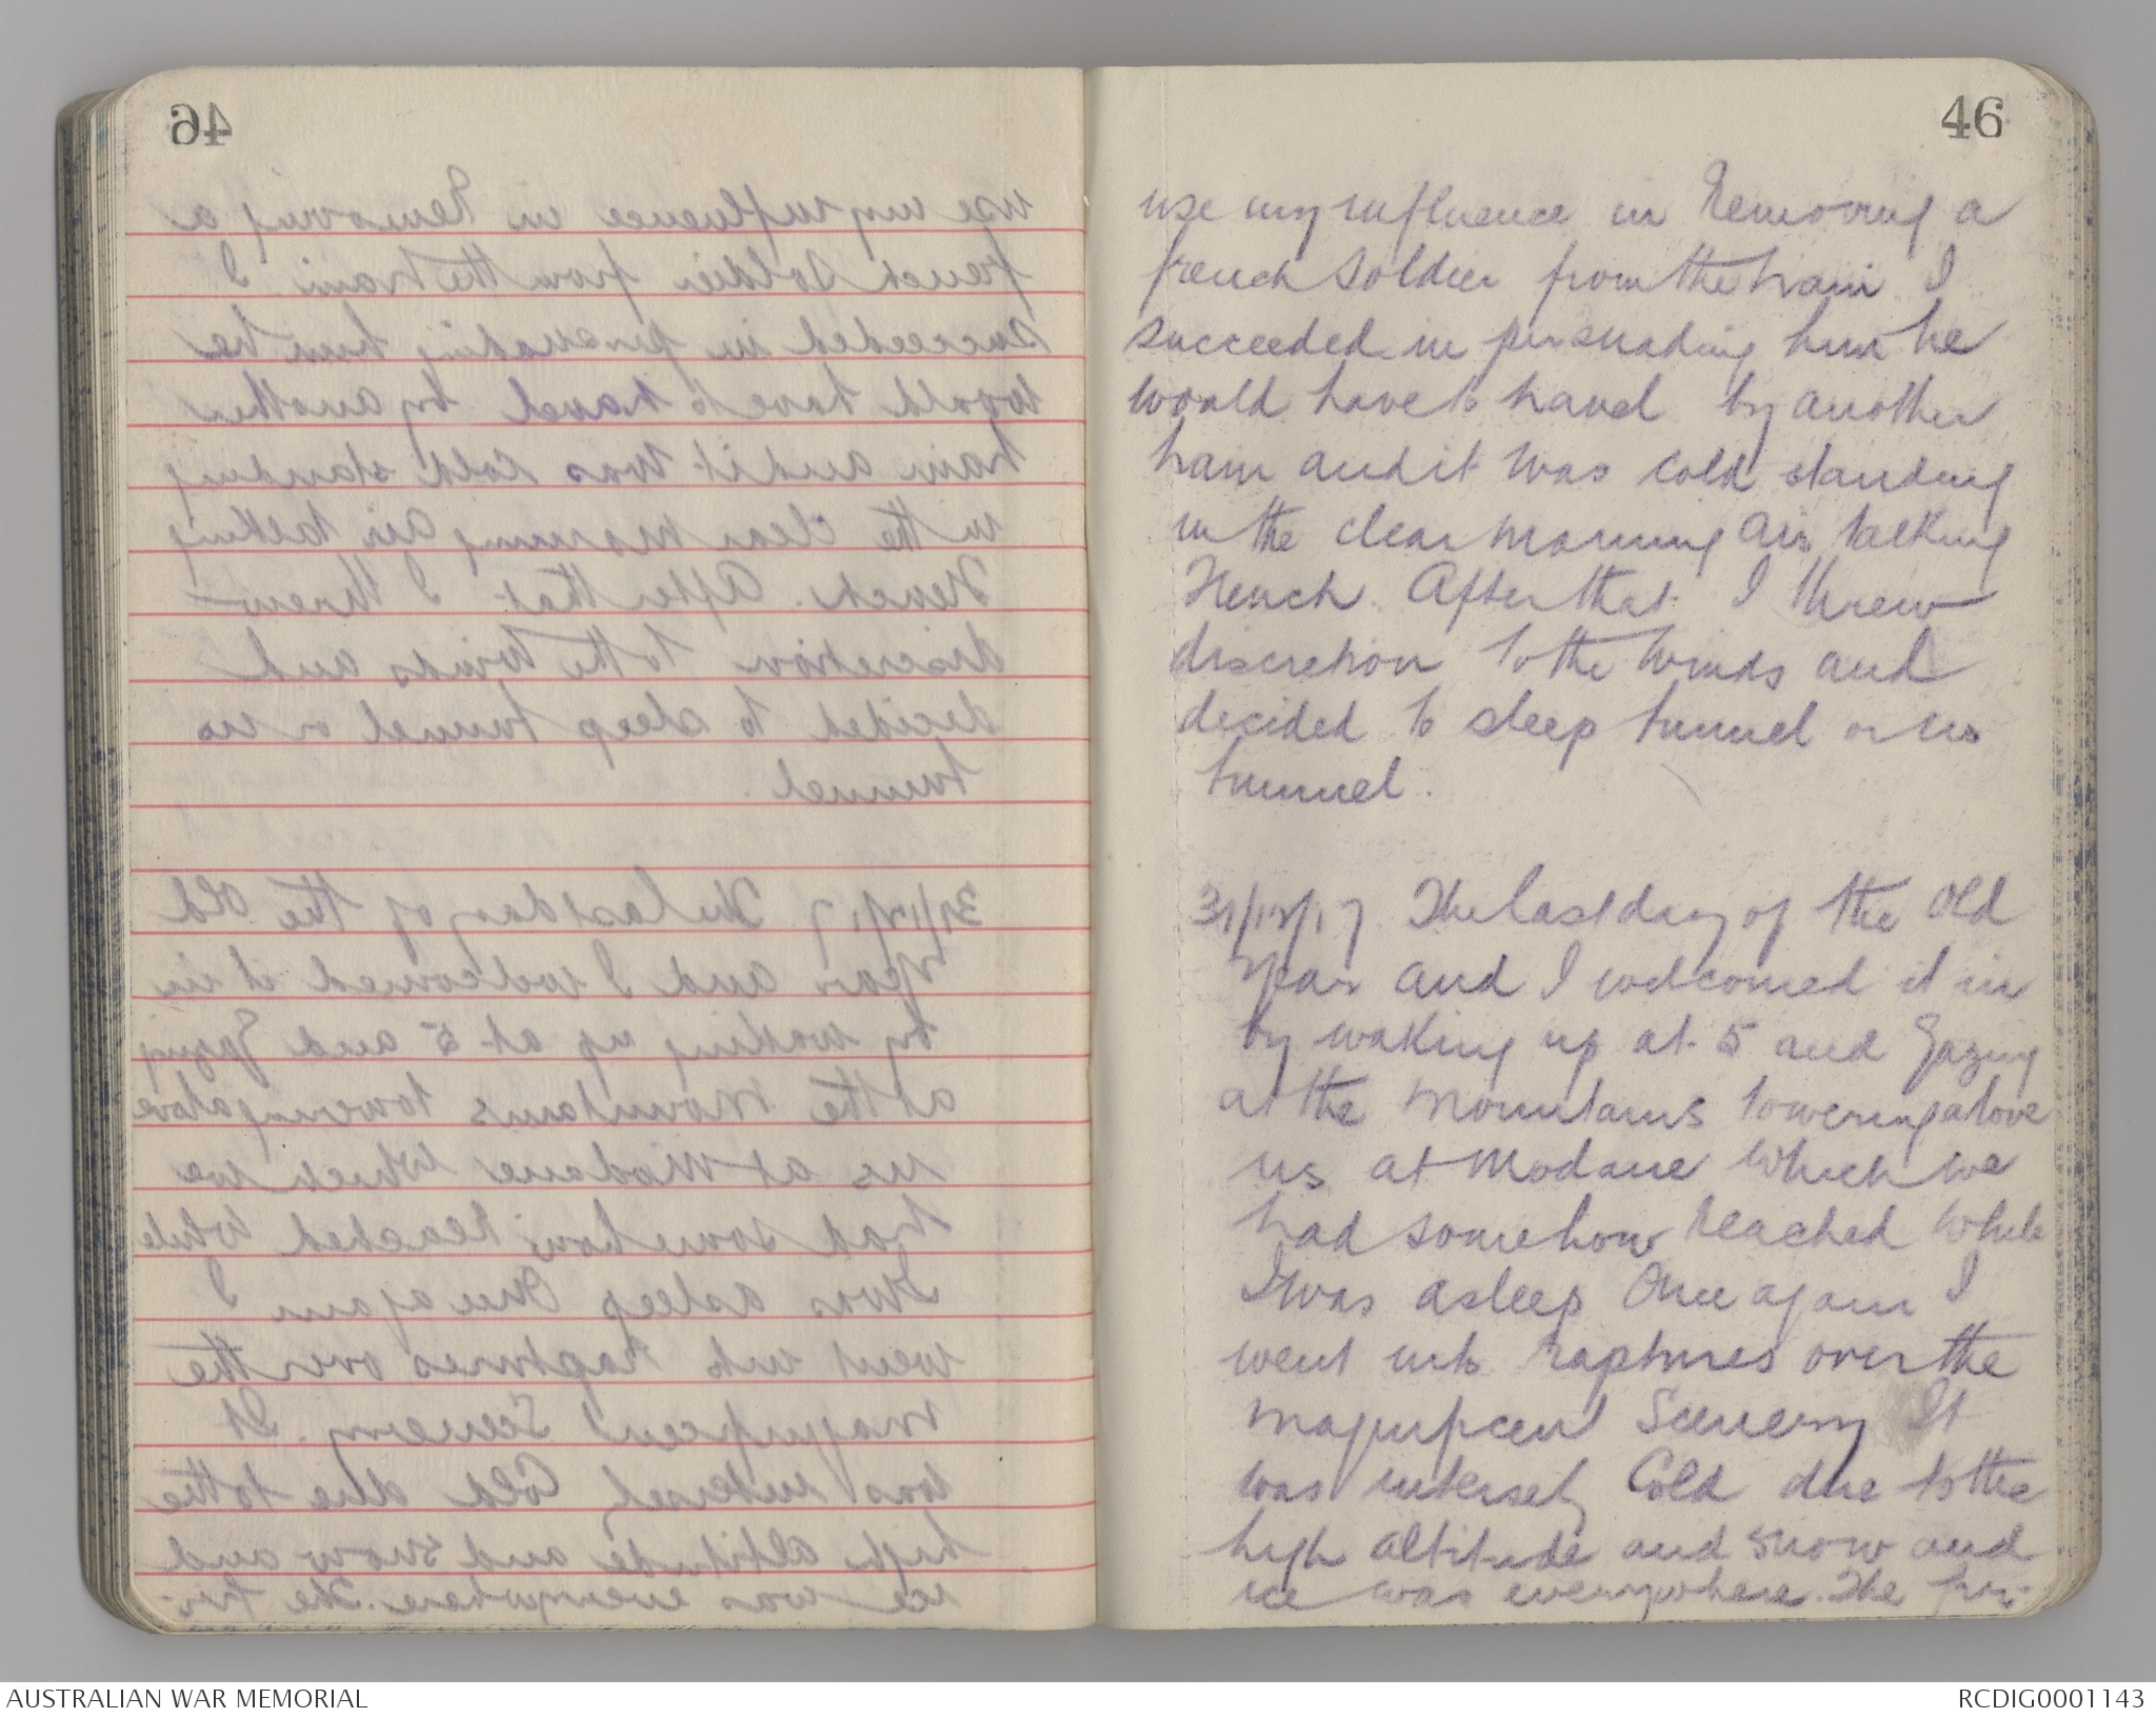 46
use my influence in removing a
french soldier from the train I
succeeded in persuading him he
would have to travel by another
train and it was cold standing
in the clear morning air talking
French. After that I threw
discretion to the winds and
decided to sleep tunnel or no
tunnel.
31/12/17. The last day of the Old
Year and I welcomed it in
by waking up at 5 and gazing
at the Mountains towering above
us at Modane which we
had somehow reached while
I was asleep Once again I
went into raptures over the
magnificent Scenery It
was intensely Cold due to the
high altitude and snow and
ice was everywhere. The
AUSTRALIAN WAR MEMORIAL
RCDIG0001143